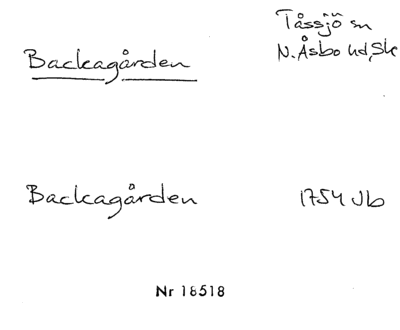 Tåssjö sn
Backagården N. Åsbo hd, Sk
Backagården 1754 Jb
Nr 18518